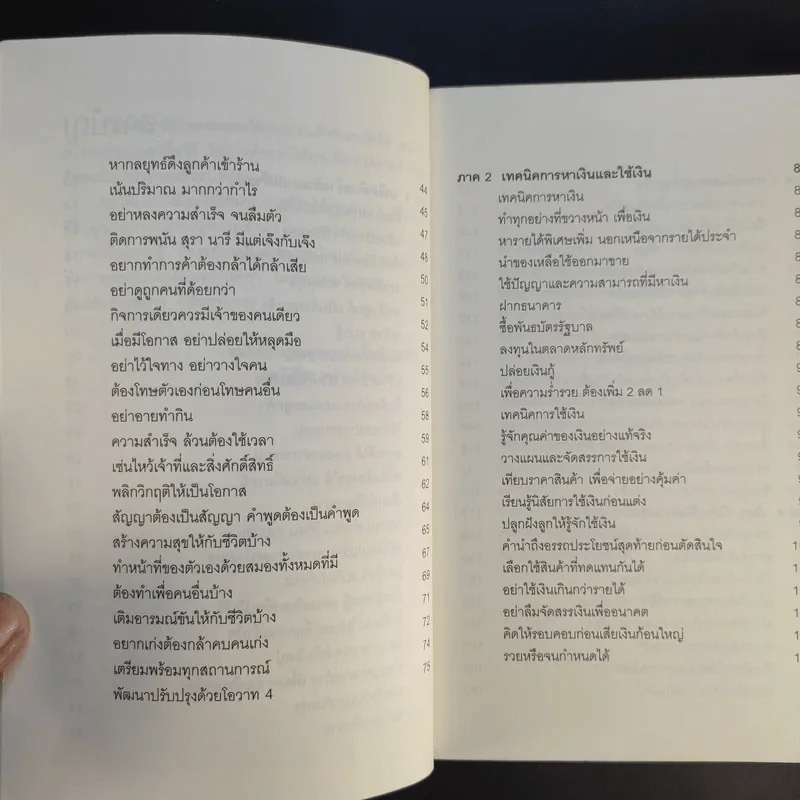 หากลยุทธ์ดึงลูกค้าเข้าร้าน 44
เน้นปริมาณ มากกว่ากำไร 45
อย่าหลงความสำเร็จ จนลืมตัว 47
ติดการพนัน สุรา นารี มีแต่เจ๊งกับเจ๊ง 48
อยากทำการค้าต้องกล้าได้กล้าเสีย 50
อย่าดูถูกคนที่ด้อยกว่า 51
กิจการเดียวควรมีเจ้าของคนเดียว 52
เมื่อมีโอกาส อย่าปล่อยให้หลุดมือ 54
อย่าไว้ใจทาง อย่าวางใจคน 55
ต้องโทษตัวเองก่อนโทษคนอื่น 56
อย่าอายทำกิน 58
ความสำเร็จ ล้วนต้องใช้เวลา 59
เซ่นไหว้เจ้าที่และสิ่งศักดิ์สิทธิ์ 61
พลิกวิกฤติให้เป็นโอกาส 62
สัญญาต้องเป็นสัญญา คำพูดต้องเป็นคำพูด 64
สร้างความสุขให้กับชีวิตบ้าง 65
ทำหน้าที่ของตัวเองด้วยสมองทั้งหมดที่มี 67
ต้องทำเพื่อคนอื่นบ้าง 69
เติมอารมณ์ขันให้กับชีวิตบ้าง 71
อยากเก่งต้องกล้าคบคนเก่ง 72
เตรียมพร้อมทุกสถานการณ์ 74
พัฒนาปรับปรุงด้วยโอวาท 4 75
ภาค 2 เทคนิคการหาเงินและใช้เงิน
เทคนิคการหาเงิน
ทำทุกอย่างที่ขวางหน้า เพื่อเงิน
หารายได้พิเศษเพิ่ม นอกเหนือจากรายได้ประจำ
นำของเหลือใช้ออกมาขาย
ใช้ปัญญาและความสามารถที่มีหาเงิน
ฝากธนาคาร
ซื้อพันธบัตรรัฐบาล
ลงทุนในตลาดหลักทรัพย์
ปล่อยเงินกู้
เพื่อความร่ำรวย ต้องเพิ่ม 2 ลด 1
เทคนิคการใช้เงิน
รู้จักคุณค่าของเงินอย่างแท้จริง
วางแผนและจัดสรรการใช้เงิน
เทียบราคาสินค้า เพื่อจ่ายอย่างคุ้มค่า
เรียนรู้นิสัยการใช้เงินก่อนแต่ง
ปลูกฝังลูกให้รู้จักใช้เงิน
คำนำถึงอรรถประโยชน์สุดท้ายก่อนตัดสินใจ
เลือกใช้สินค้าที่ทดแทนกันได้
อย่าใช้เงินเกินกว่ารายได้
อย่าลืมจัดสรรเงินเพื่ออนาคต
คิดให้รอบคอบก่อนเสียเงินก้อนใหญ่
รวยหรือจนกำหนดได้